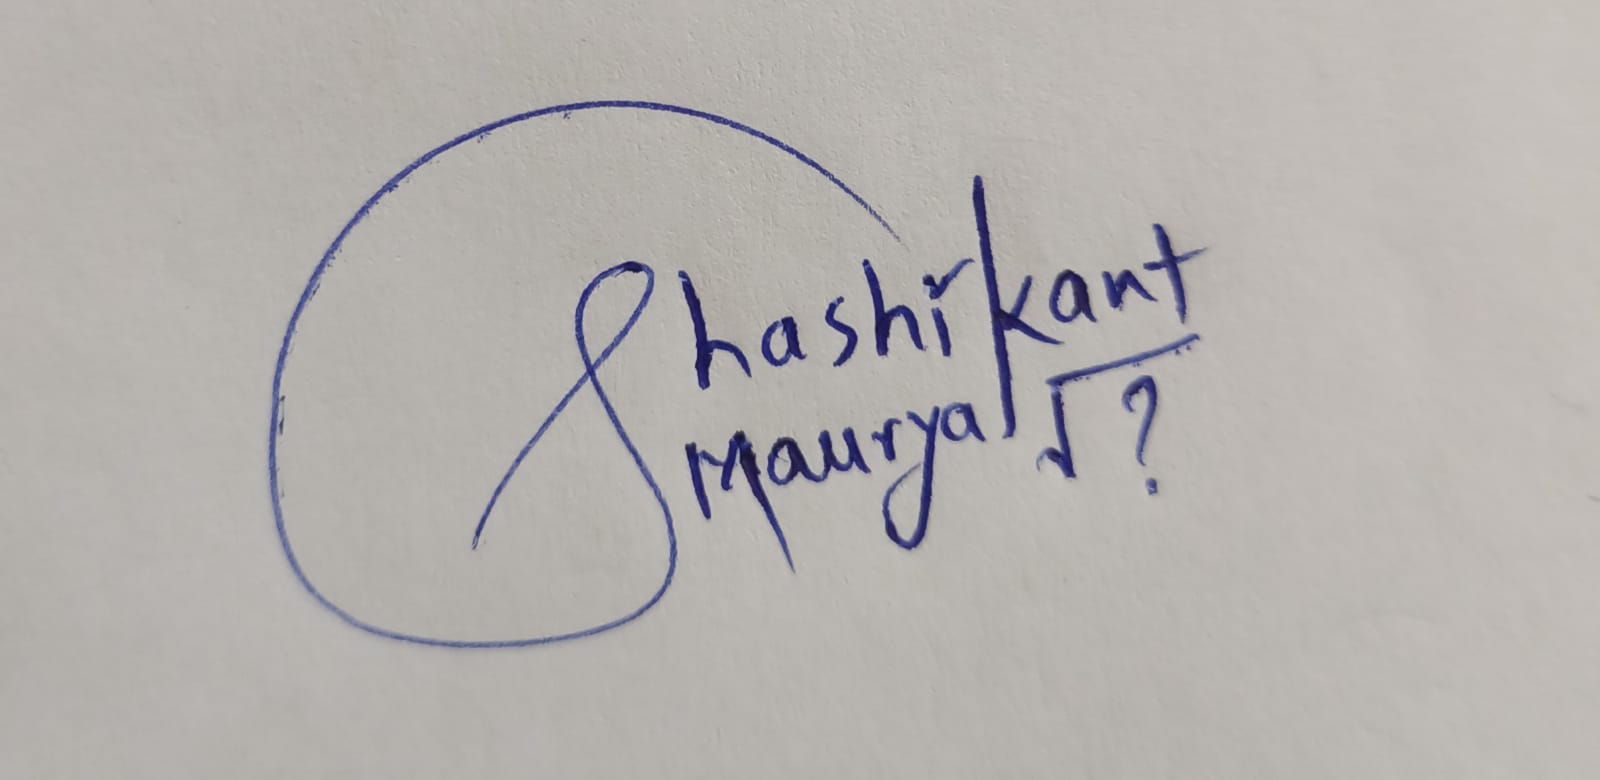 Shashikant
Maurya √?